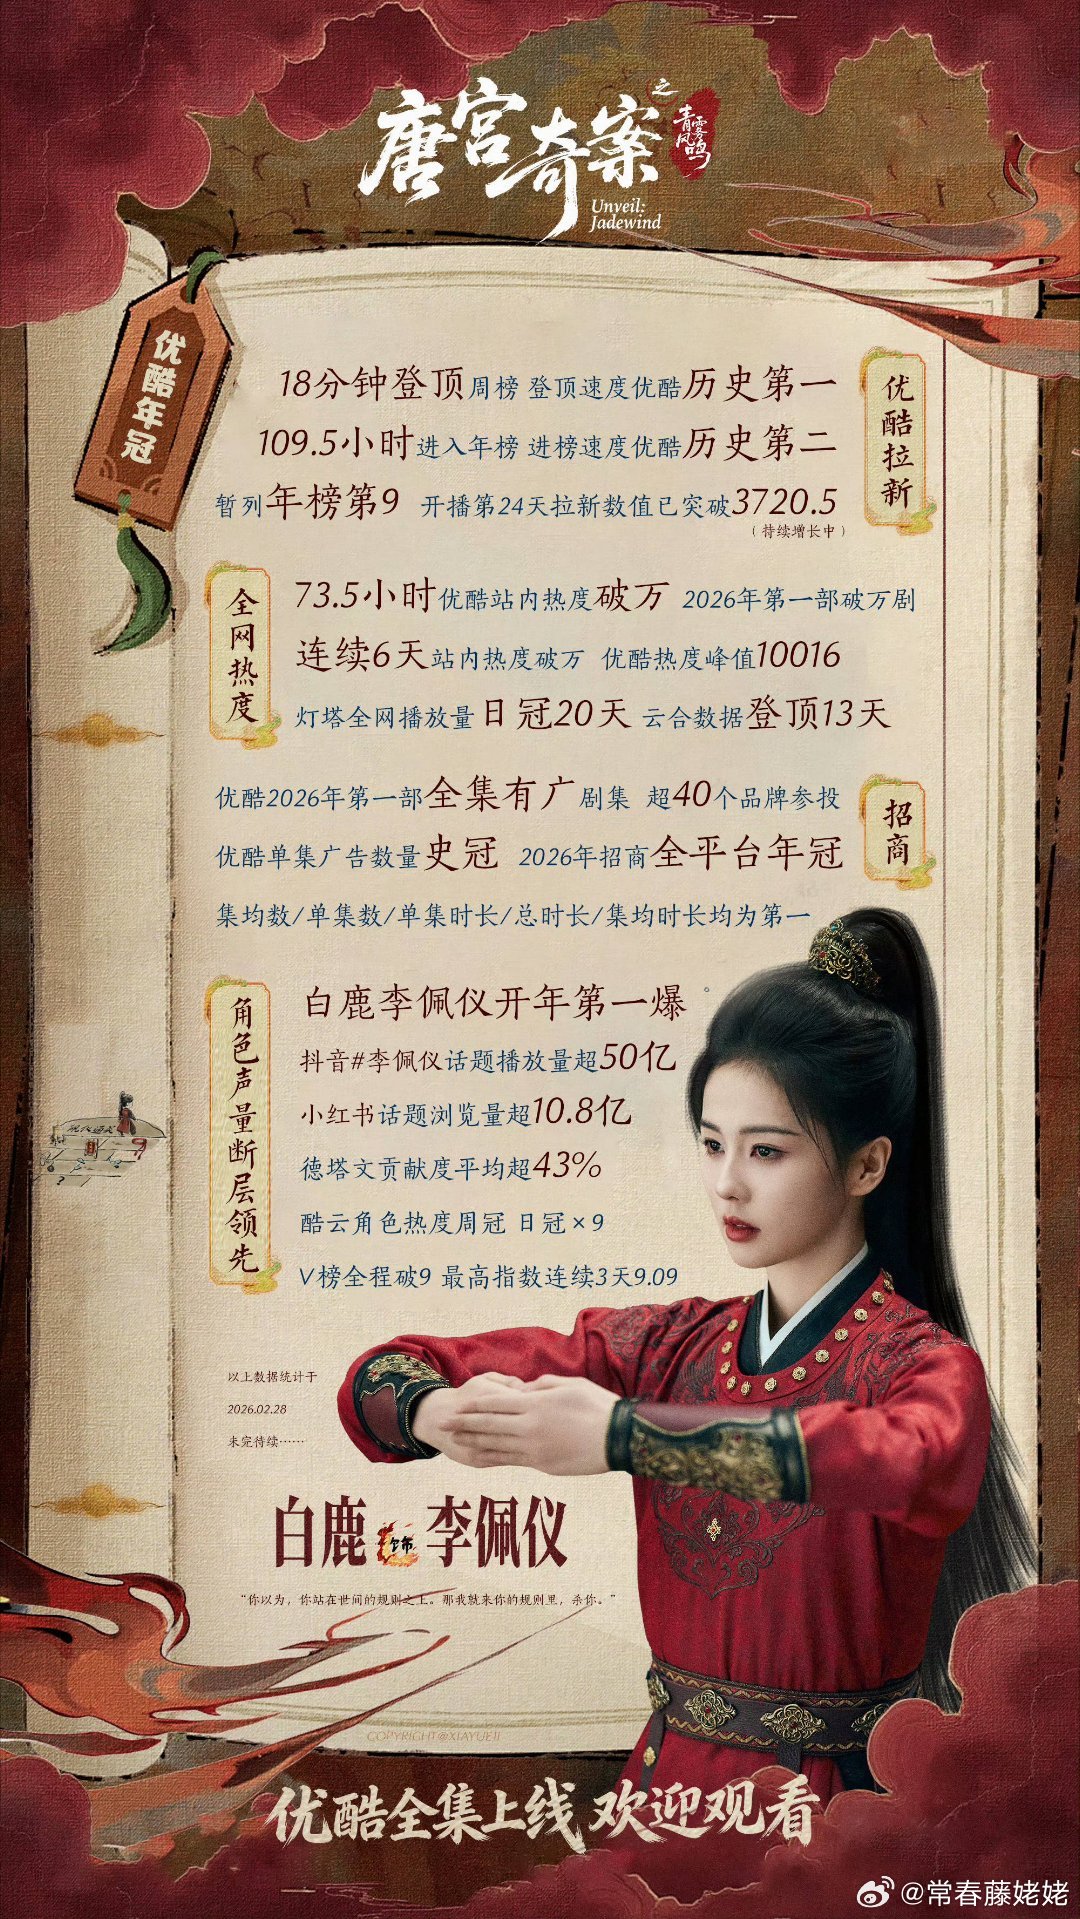 唐宫奇案之
青雾风鸣
Unveil:
Jadewind
优酷年冠
优酷拉新
18分钟登顶周榜 登顶速度优酷历史第一
109.5小时进入年榜 进榜速度优酷历史第二
暂列年榜第9 开播第24天拉新数值已突破3720.5
(持续增长中)
全网热度
73.5小时优酷站内热度破万 2026年第一部破万剧
连续6天站内热度破万 优酷热度峰值10016
灯塔全网播放量日冠20天 云合数据登顶13天
招商
优酷2026年第一部全集有广剧集 超40个品牌参投
优酷单集广告数量史冠 2026年招商全平台年冠
集均数/单集数/单集时长/总时长/集均时长均为第一
角色声量断层领先
白鹿李佩仪开年第一爆
抖音#李佩仪话题播放量超50亿
小红书话题浏览量超10.8亿
德塔文贡献度平均超43%
酷云角色热度周冠 日冠×9
V榜全程破9 最高指数连续3天9.09
以上数据统计于
2026.02.28
未完待续……
白鹿 饰 李佩仪
“你以为，你站在世间的规则之上。那我就来你的规则里，杀你。”
COPYRIGHT@XIAYUEII
优酷全集上线 欢迎观看
@常春藤姥姥